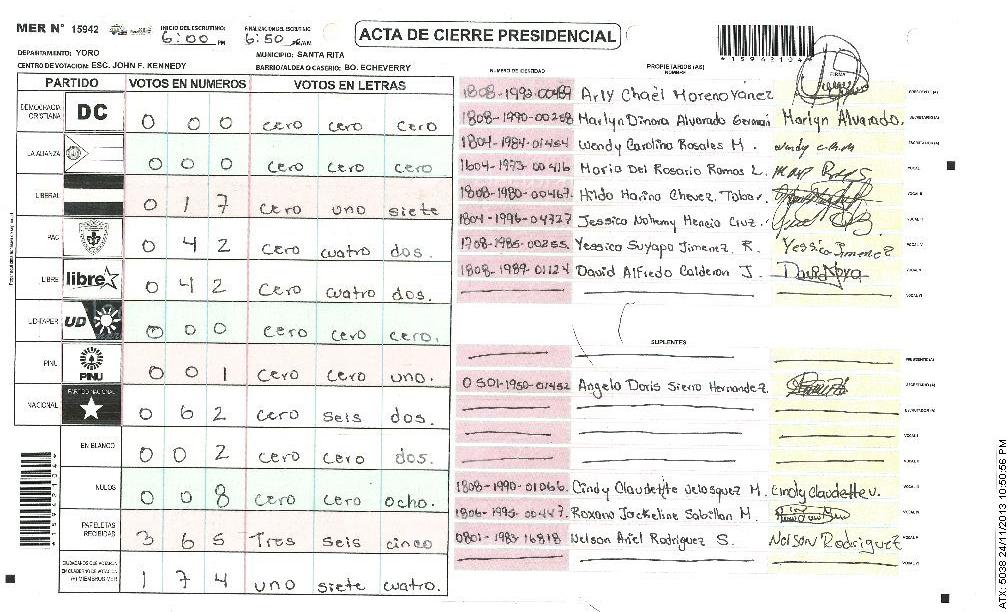 MER N° 15942
INICIO DEL ESCRUTINIO: 6:00 PM
FINALIZACION DEL ESCRUTINIO 6:50 PM/AM
ACTA DE CIERRE PRESIDENCIAL
DEPARTAMENTO: YORO
MUNICIPIO: SANTA RITA
CENTRO DE VOTACION: ESC. JOHN F. KENNEDY
BARRIO/ALDEA O CASERIO: BO. ECHEVERRY
PARTIDO VOTOS EN NUMEROS VOTOS EN LETRAS
DEMOCRACIA CRISTIANA DC 0 0 0 cero cero cero
LA ALIANZA 0 0 0 cero cero cero
LIBERAL 0 1 7 cero uno siete
PAC 0 4 2 cero cuatro dos.
LIBRE libre 0 4 2 cero cuatro dos.
UD-FAPER UD 0 0 0 cero cero cero.
PINU PINU 0 0 1 cero cero uno.
NACIONAL PARTIDO NACIONAL 0 6 2 cero seis dos.
EN BLANCO 0 0 2 cero cero dos.
NULOS 0 0 8 cero cero ocho.
PAPELETAS RECIBIDAS 3 6 5 Tres seis cinco
CIUDADANOS QUE VOTARON EN CUADERNO DE VOTACION (+) MIEMBROS MER 1 7 4 uno siete cuatro.
NUMERO DE IDENTIDAD PROPIETARIOS (AS) NOMBRE FIRMA
1808-1993-00489 Arly Chaèl Moreno Yánez PRESIDENTE (A)
1808-1990-00258 Marlyn Dinora Alvarado Germán Marlyn Alvarado. SECRETARIO (A)
1804-1984-01454 Wendy Carolina Rosales M. ESCRUTADOR (A)
1604-1973-00416 Maria Del Rosario Ramos L. VOCAL I
1808-1980-00467. Hilda Marina Chevez Tobar. VOCAL II
1804-1996-04727 Jessica Nohemy Mencia Cruz.
1708-1985-00255. Yessica Suyapa Jimenez R. Yessica Jimenez VOCAL IV
1808-1989-01124 David Alfredo Calderon J. VOCAL V
VOCAL VI
SUPLENTES
PRESIDENTE (A)
0501-1950-01452 Angela Doris Sierra Hernandez SECRETARIO (A)
ESCRUTADOR (A)
VOCAL I
VOCAL II
1808-1990-01066. Cindy Claudette Velasquez M. Cindy Claudette V.
1806-1995-00447. Roxana Jackeline Sabillan M.
0801-1983-16818 Nelson Ariel Rodriguez S. Nelson Rodriguez
VOCAL VI
ATX: 5038 24/11/2013 10:50:56 PM